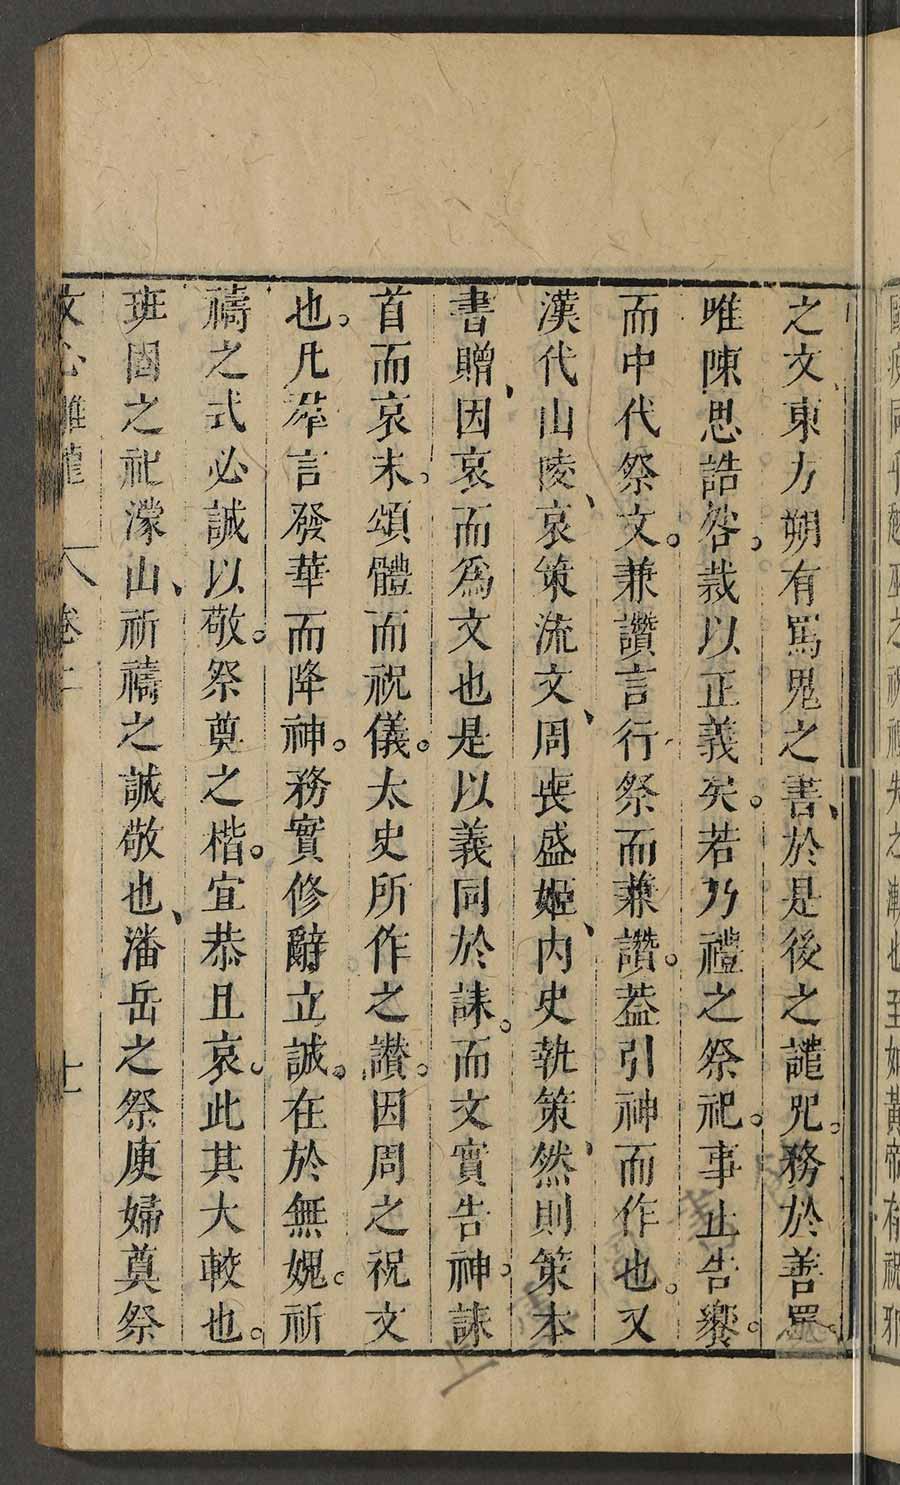 之文、東方朔有罵鬼之書、於是後之譴呪。務於善罵。
唯陳思誥咎。裁以正義矣。若乃禮之祭祀。事止告饗。
而中代祭文。兼讚言行祭而兼讚。葢引神而作也。又
漢代山陵、哀策流文、周喪盛姬、內史執策、然則策本
書贈、因哀而爲文也是以義同於誄。而文實告神。誄
首而哀末。頌體而祝儀。太史所作之讃。因周之祝文
也。凡羣言發華而降神。務實修辭立誠。在於無媿。祈
禱之式必誠以敬。祭奠之楷。宜恭且哀。此其大較也。
班固之祀濛山、祈禱之誠敬也、潘岳之祭庾婦奠祭
文心雕龍 卷二 十